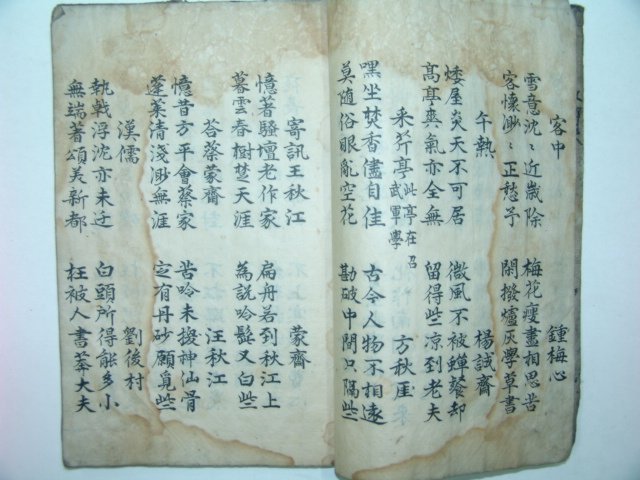 客中 鍾梅心
雪意沈〻近歲除 梅花瘦盡相思苦
客懷渺〻正愁予 閑撥爐灰學草書
午熱 楊誠齋
矮屋炎天不可居 微風不被蟬餐却
高亭爽氣亦全無 留得些凉到老夫
采芹亭 此亭在召武軍學 方秋崖
嘿坐焚香儘自佳 古今人物不相遠
莫隨俗眼亂空花 勘破中間只隔些
寄訊王秋江 蒙齋
憶著騷壇老作家 扁舟若到秋江上
暮雲春樹楚天涯 為說吟髭又白些
答蔡蒙齋 汪秋江
憶昔方平會蔡家 苦吟未換神仙骨
蓬萊清淺渺無涯 㝎有丹砂願覓些
漢儒 劉後村
執戟浮沈亦未迂 白頭所得能多小
無端著頌美新都 枉被人書莽大夫